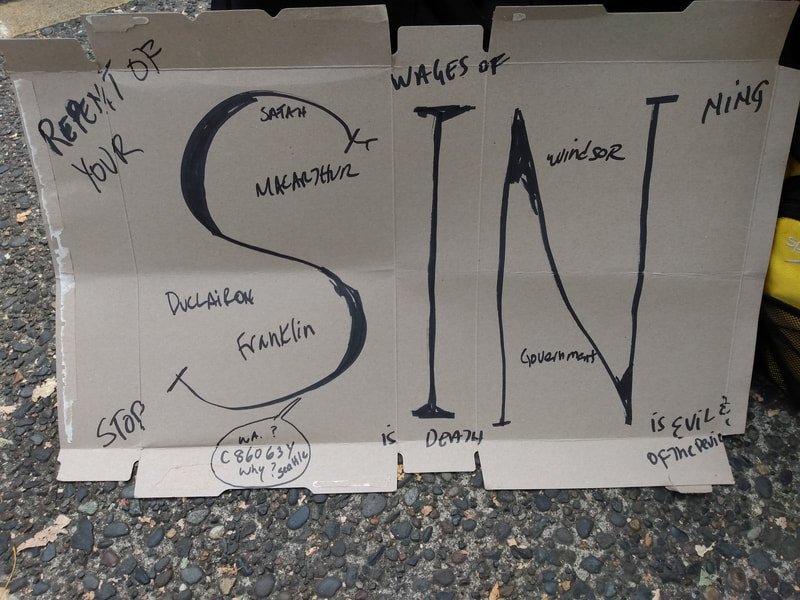 REPENT OF
YOUR
WAGES OF
SIN
NING
SATAN
MACARTHUR
WINDSOR
DUCLAIRON
Franklin
Government
STOP
WA. ?
C86063Y
Why? Seattle
is DEATH
is EVIL &
OF THE Devil